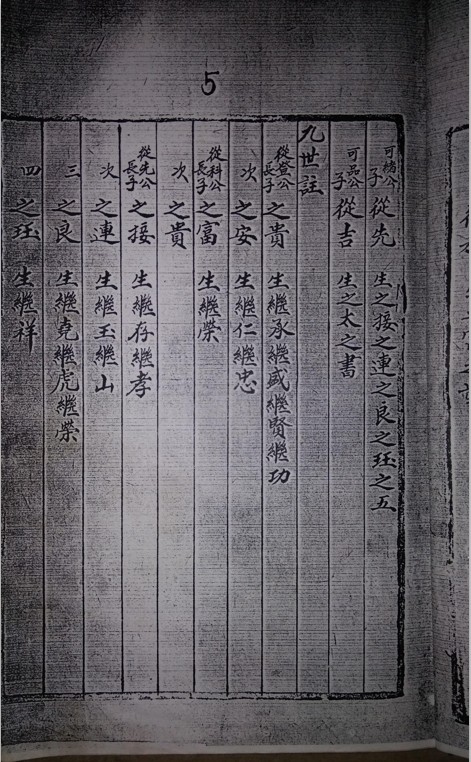 5
可緒公子 從先 生之接之連之良之珏之五
可品公子 從吉 生之太之書
九世註
從登公長子 之貴 生繼承繼盛繼賢繼功
次 之安 生繼仁繼忠
從科公長子 之富 生繼榮
次 之貴
從先公長子 之接 生繼存繼孝
次 之連 生繼玉繼山
三 之良 生繼堯繼虎繼榮
四 之珏 生繼祥